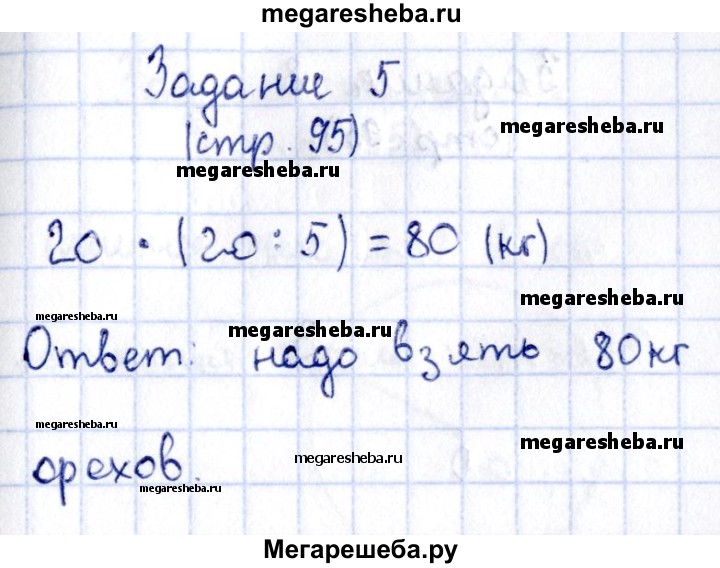 megaresheba.ru
Задание 5
megaresheba.ru
(стр. 95)
megaresheba.ru
20 · (20 : 5) = 80 (кг)
megaresheba.ru
megaresheba.ru
megaresheba.ru
Ответ: надо взять 80 кг
megaresheba.ru
megaresheba.ru
megaresheba.ru
орехов.
megaresheba.ru
Мегарешеба.ру